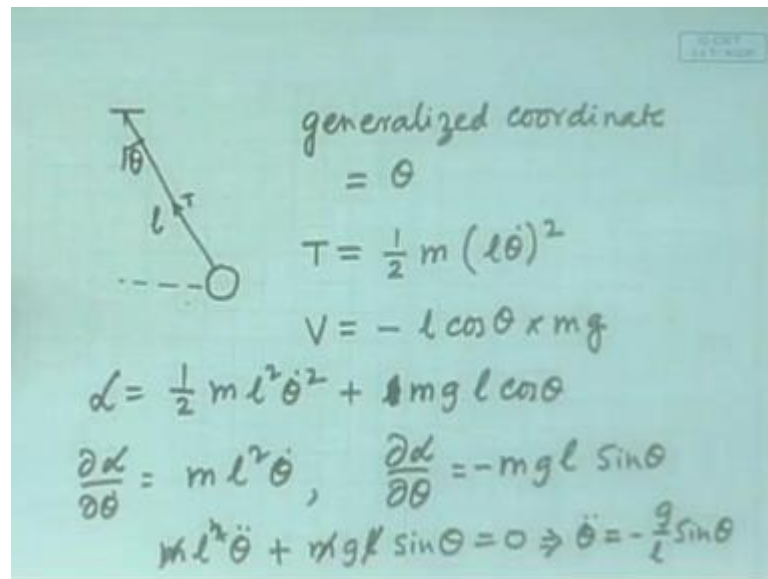 generalized coordinate
= θ
θ
T
l
T = 1/2 m (lθ̇)²
V = - l cosθ × mg
ℒ = 1/2 m l² θ̇² + mg l cosθ
∂ℒ/∂θ̇ = m l² θ̇, ∂ℒ/∂θ = -mgl sinθ
ml²θ̈ + mgl sinθ = 0 ⇒ θ̈ = -g/l sinθ